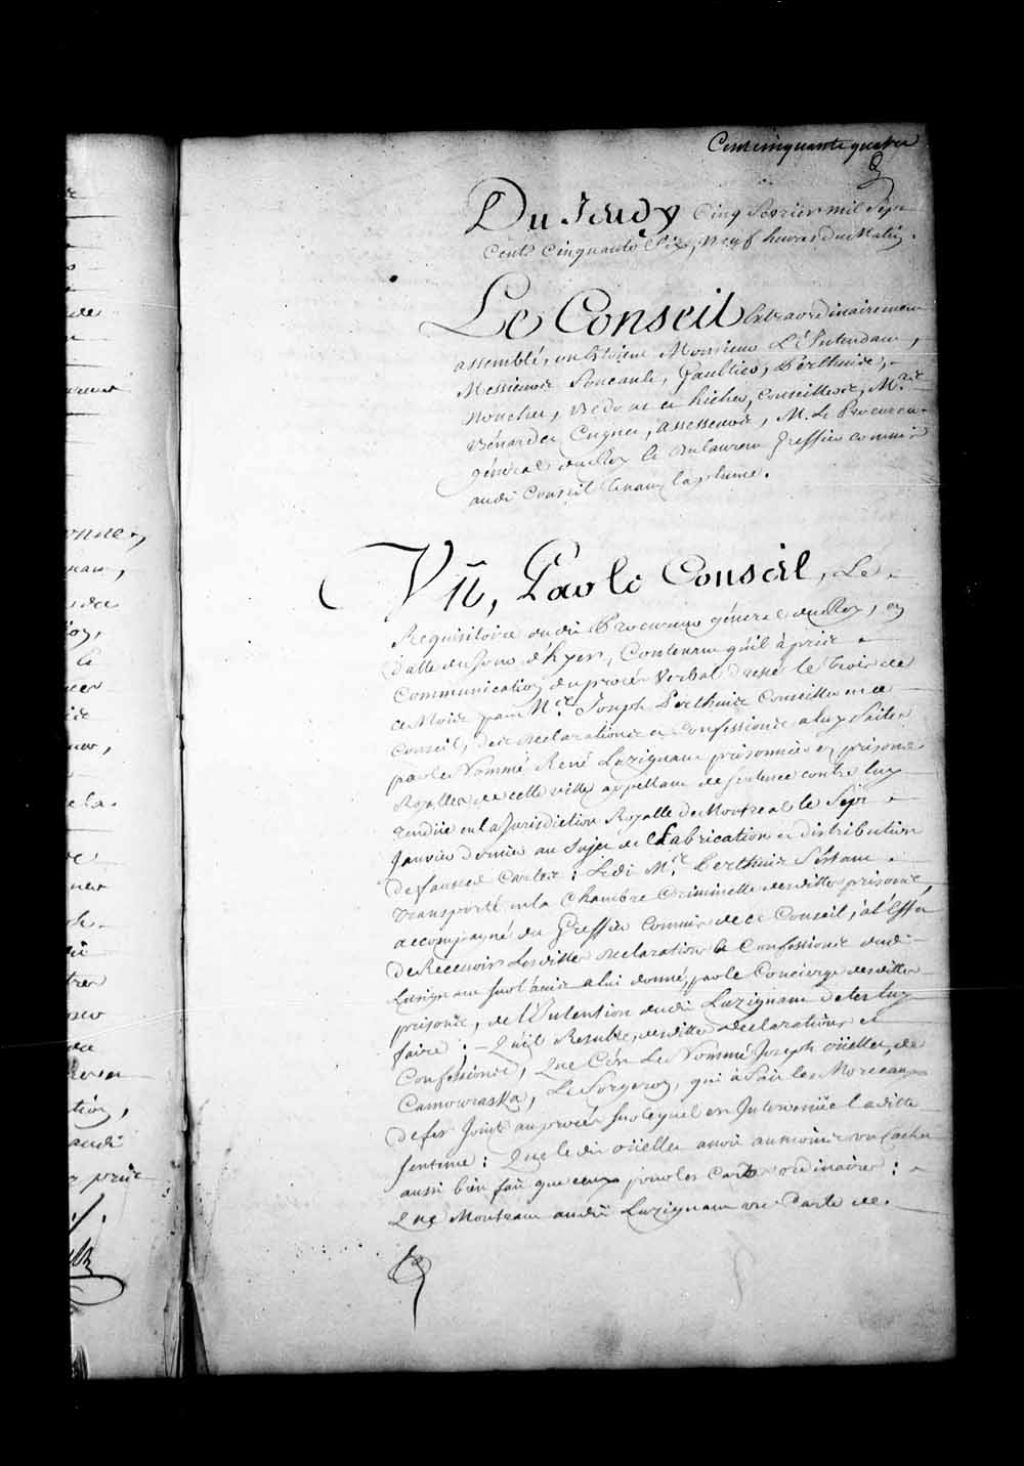 Cent cinquante quatre
Du Jeudy Cinq Fevrier mil Sept
Cents Cinquante Six, Neuf heures du Matin.
Le Conseil Extraordinairement
assemblé, où Etoient Monsieur L'Intendant,
Messieurs Foucault, Gaultier, Perthuis,
Nouchet, Bedout et hiché, Conseillers, Mres
Bénard et Cugnet, assesseurs, M. Le Procureur
général du Roy, le Dulaurent Greffier commis
audit Conseil tenant la plume.
Vû, Par le Conseil, Le
Requisitoire dudit Procureur général du Roy, en
datte du Jour d'hyer, Contenant qu'il à pris
Communication du procès Verbal dressé le trois de
ce Mois par Mre Joseph Perthuis Conseiller en ce
Conseil, des declarations et Confessions a luy faites
par le Nommé René Luzignant prisonnier es prisons
Royalles de cette ville appellant de Sentence contre luy
rendüe en la Jurisdiction Royalle de Montreal le Sept
Janvier dernier au Sujet de Fabrication et distribution
de fausses Cartes; Ledit Mre Perthuis S'étant
transporté en la Chambre Criminelle desdittes prisons,
accompagné du Greffier Commis de ce Conseil, à l'Effet
de Recevoir Lesdittes declarations et Confessions dudit
Luzignant sur l'avis a lui donné, par le Concierge desdittes
prisons, de l'Intention dudit Luzignant de les luy
faire; Qu'il Resulte, desdittes declarations et
Confessions, Que C'est Le Nommé Joseph oüellet, de
Camouraska, Le Forgeron, qui à fait les Morceaux
de fer Joints au procès sur lequel est Intervenüe laditte
Sentence: Que le dit oüellet avoit au moins un Cachet
aussi bien fait que ceux pour les Cartes ordinaires:
Que Montrant audit Luzignant une Carte de